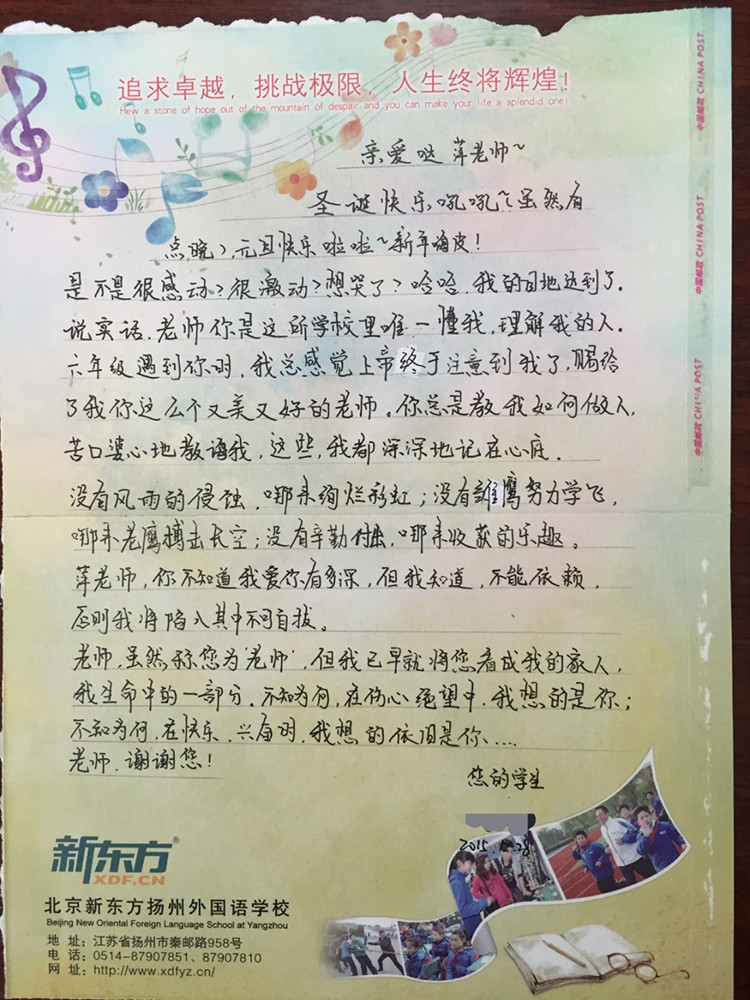 追求卓越，挑战极限，人生终将辉煌！
Hew a stone of hope out of the mountain of despair and you can make your life a splendid one!
中国邮政 CHINA POST
中国邮政 CHINA POST
中国邮政 CHINA POST
亲爱哒萍老师~
圣诞快乐吼吼~虽然有
点晚，元旦快乐啦啦~新年嗨皮！
是不是很感动？很激动？想哭了？哈哈，我的目地达到了.
说实话.老师你是这所学校里唯一懂我，理解我的人.
六年级遇到你时，我总感觉上帝终于注意到我了，赐给
了我你这么个又美又好的老师。你总是教我如何做人，
苦口婆心地教诲我，这些，我都深深地记在心底.
没有风雨的侵蚀，哪来绚烂彩虹；没有雏鹰努力学飞，
哪来老鹰搏击长空；没有辛勤付出，哪来收获的乐趣。
萍老师，你不知道我爱你有多深，但我知道，不能依赖，
否则我将陷入其中不可自拔。
老师，虽然称您为"老师"，但我已早就将您看成我的家人，
我生命中的一部分.不知为何，在伤心绝望中，我想的是你；
不知为何.在快乐、兴奋时，我想的依旧是你....
老师.谢谢您！
您的学生
新东方®
XDF.CN
北京新东方扬州外国语学校
Beijing New Oriental Foreign Language School at Yangzhou
地 址：江苏省扬州市秦邮路958号
电 话：0514-87907851、87907810
网 址：http://www.xdfyz.cn/